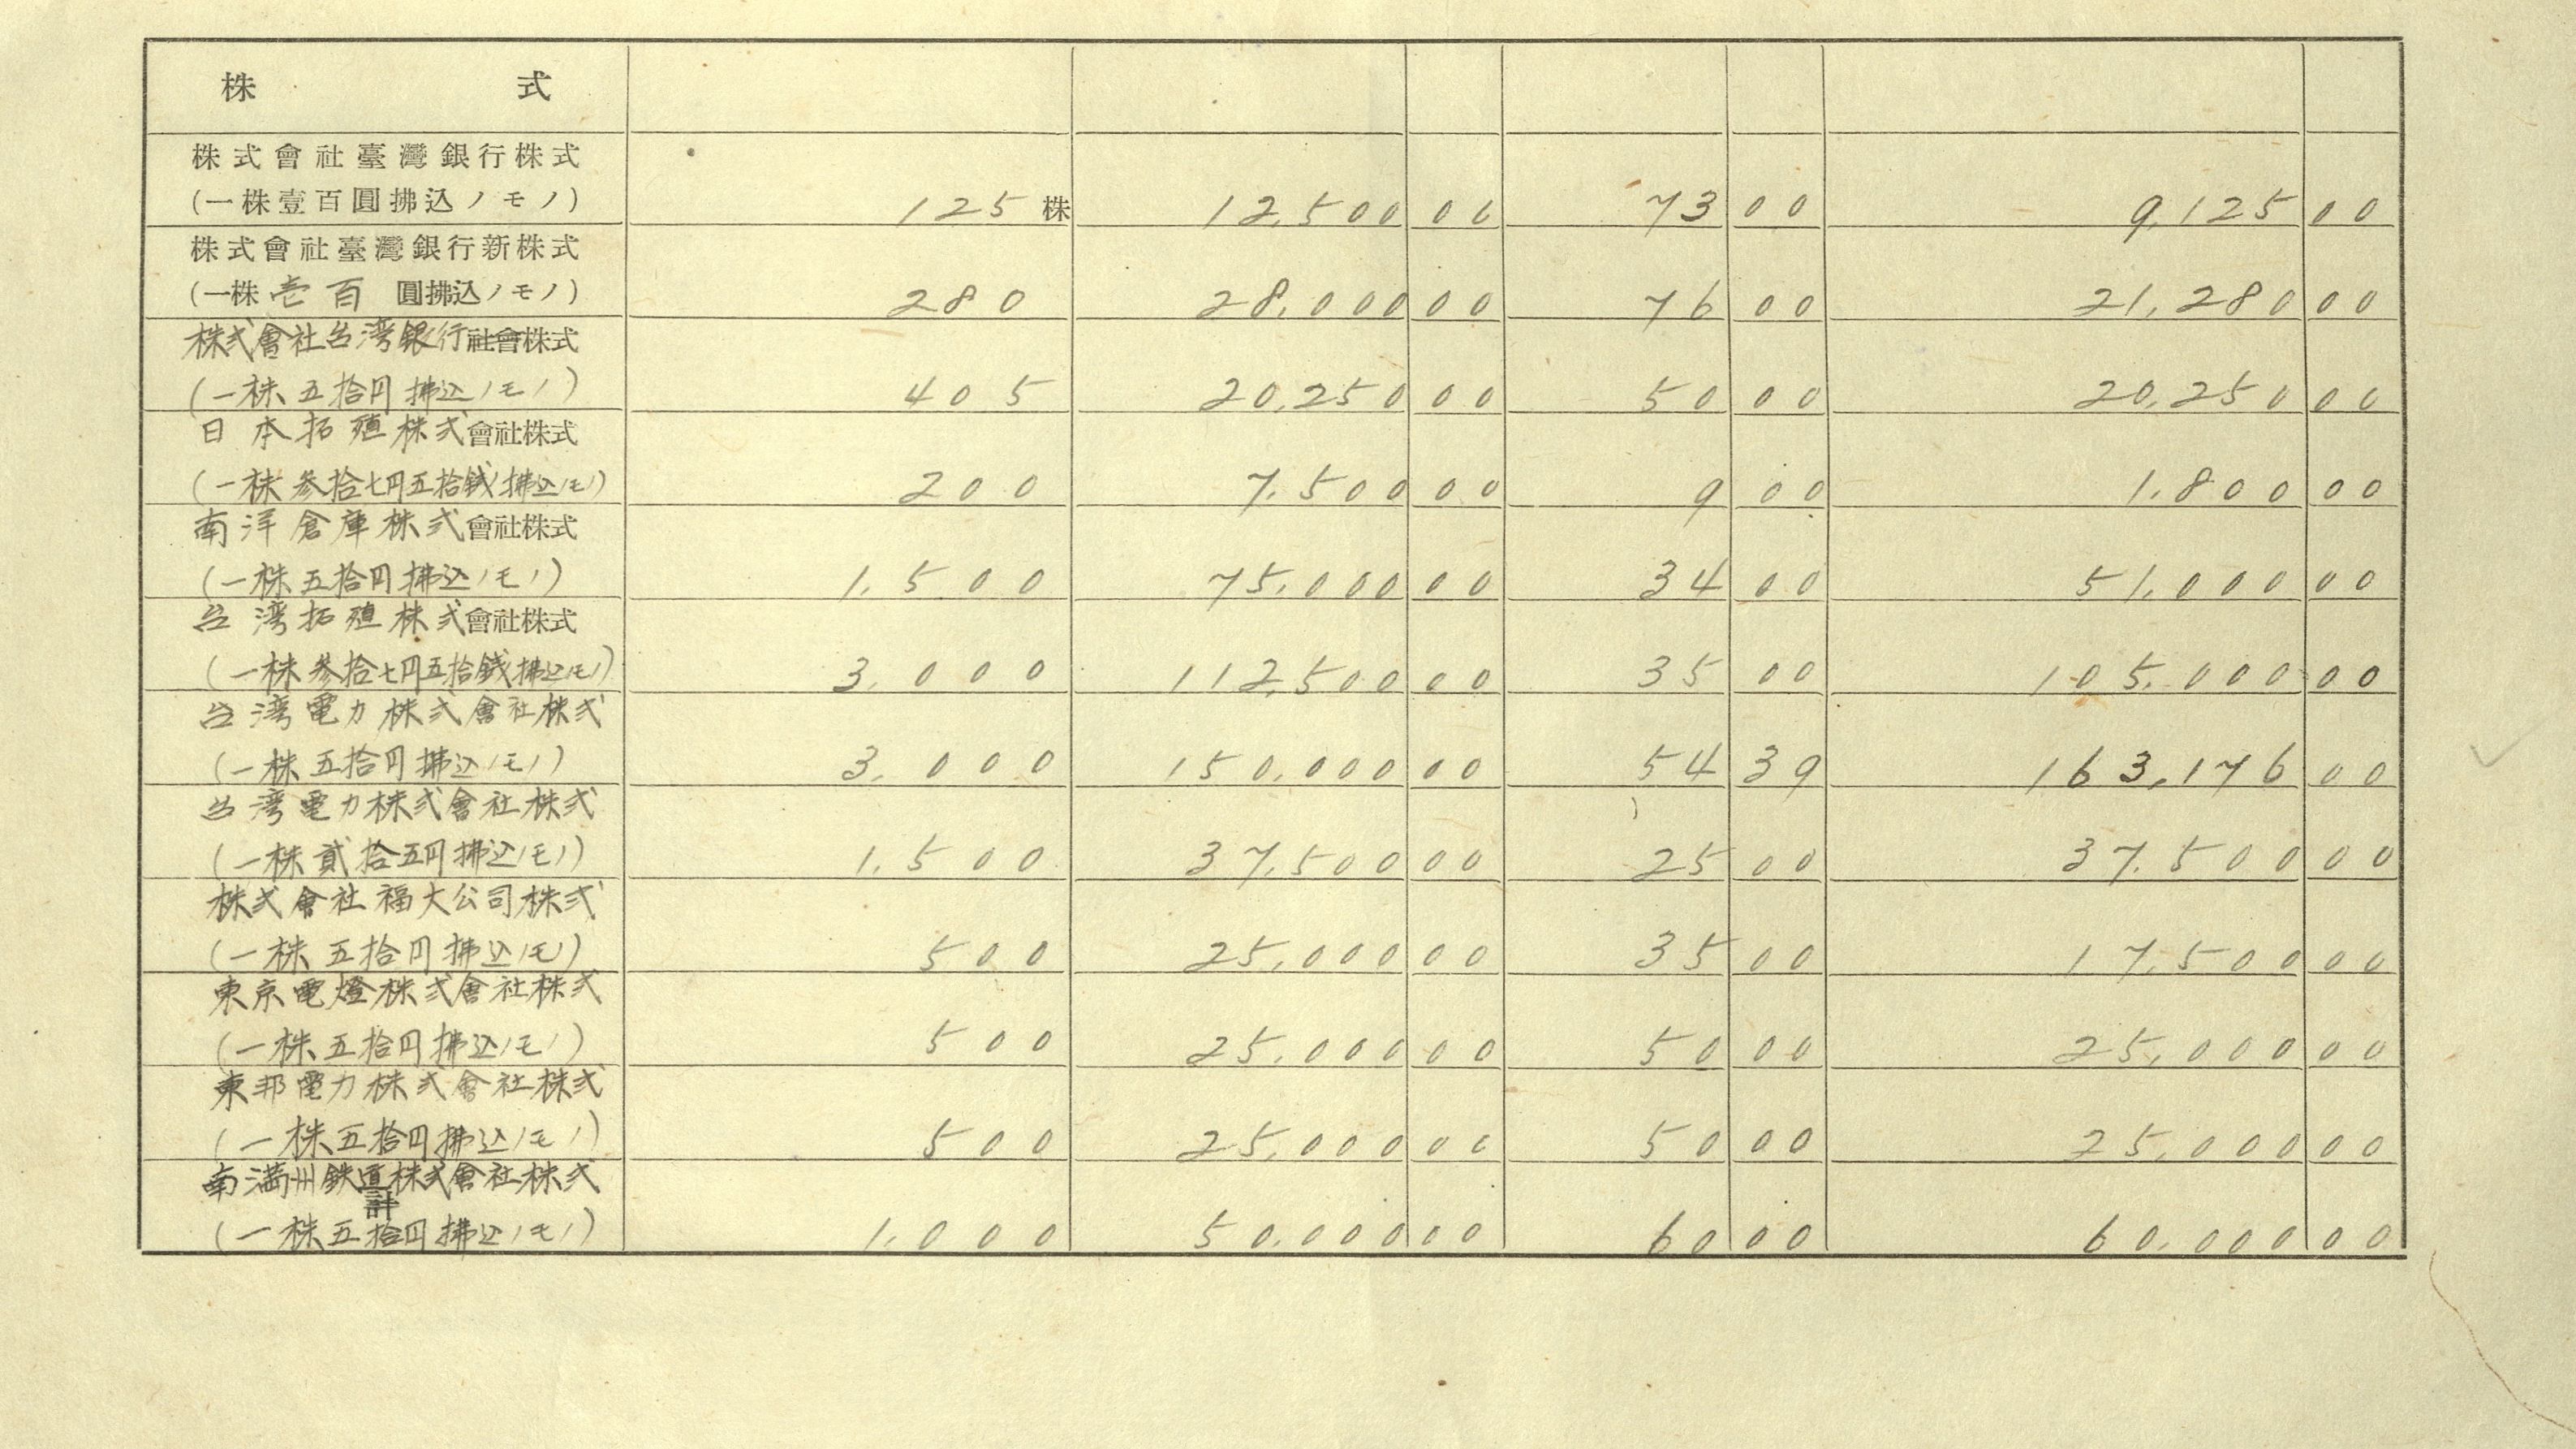 株式
株式會社臺灣銀行株式
(一株壹百圓拂込ノモノ) 125株 12,500 00 73 00 9,125 00
株式會社臺灣銀行新株式
(一株壱百圓拂込ノモノ) 280 28,000 00 76 00 21,280 00
株式會社台湾銀行社會株式
(一株五拾円拂込ノモノ) 405 20,250 00 50 00 20,250 00
日本拓殖株式會社株式
(一株参拾七円五拾銭拂込ノモノ) 200 7,500 00 9 00 1,800 00
南洋倉庫株式會社株式
(一株五拾円拂込ノモノ) 1,500 75,000 00 34 00 51,000 00
台湾拓殖株式會社株式
(一株参拾七円五拾銭拂込ノモノ) 3,000 112,500 00 35 00 105,000 00
台湾電力株式會社株式
(一株五拾円拂込ノモノ) 3,000 150,000 00 54 39 163,176 00
台湾電力株式會社株式
(一株貳拾五円拂込ノモノ) 1,500 37,500 00 25 00 37,500 00
株式會社福大公司株式
(一株五拾円拂込ノモノ) 500 25,000 00 35 00 17,500 00
東京電燈株式會社株式
(一株五拾円拂込ノモノ) 500 25,000 00 50 00 25,000 00
東邦電力株式會社株式
(一株五拾円拂込ノモノ) 500 25,000 00 50 00 25,000 00
南満州鉄道株式會社株式
計
(一株五拾円拂込ノモノ) 1,000 50,000 00 60 00 60,000 00